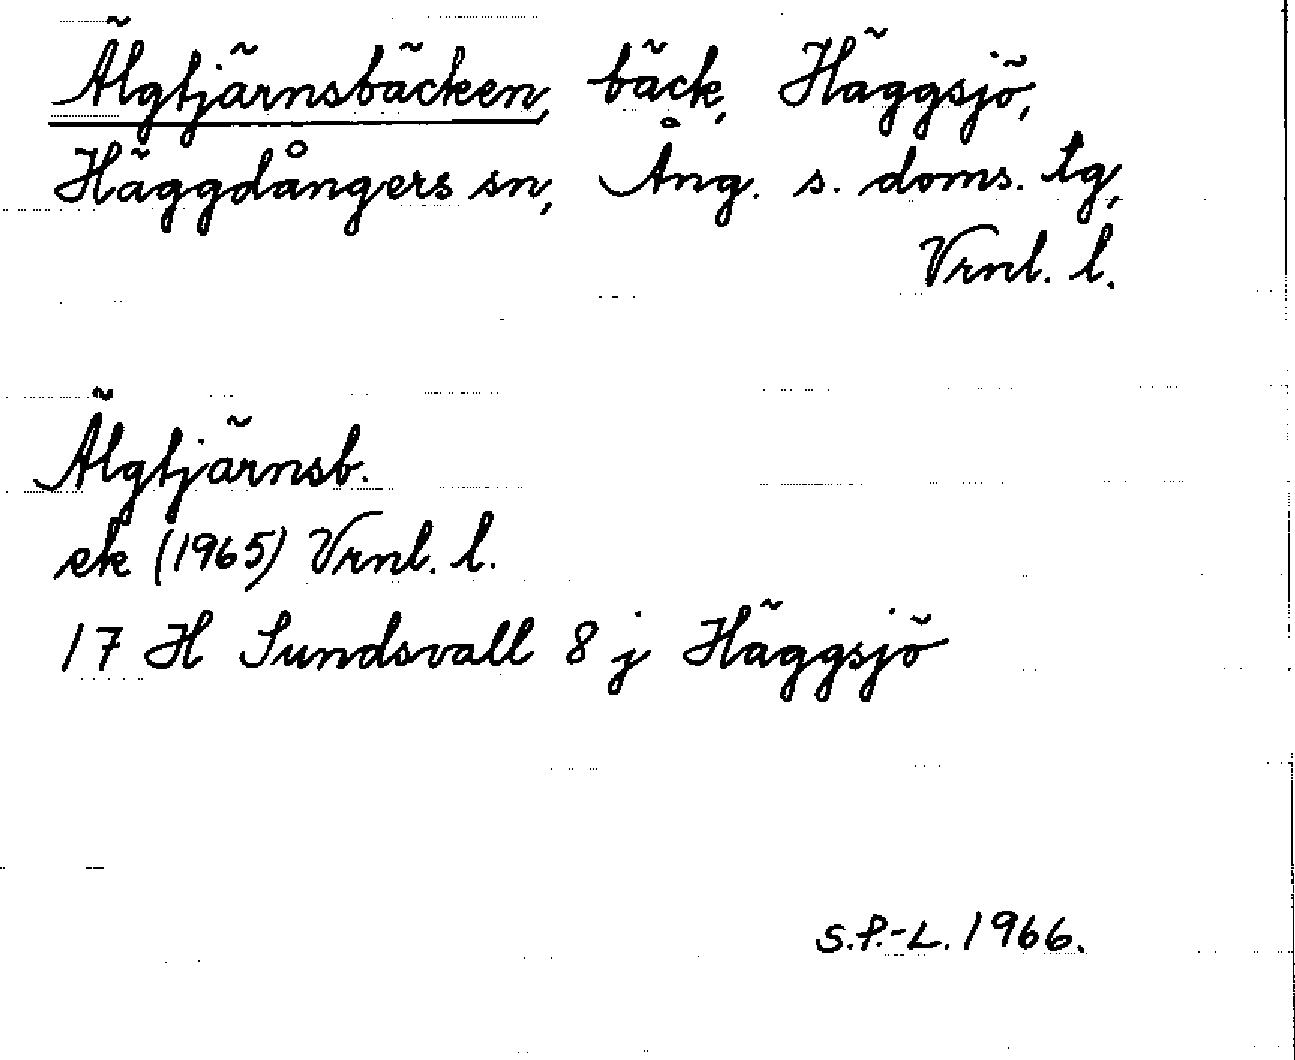 Älgtjärnsbäcken, bäck, Häggsjö,
Häggdångers sn, Ång. s. doms. tg,
Vrnl. l.
Älgtjärnsb.
ek (1965) Vrnl. l.
17 H Sundsvall 8 j Häggsjö
S.P.-L. 1966.